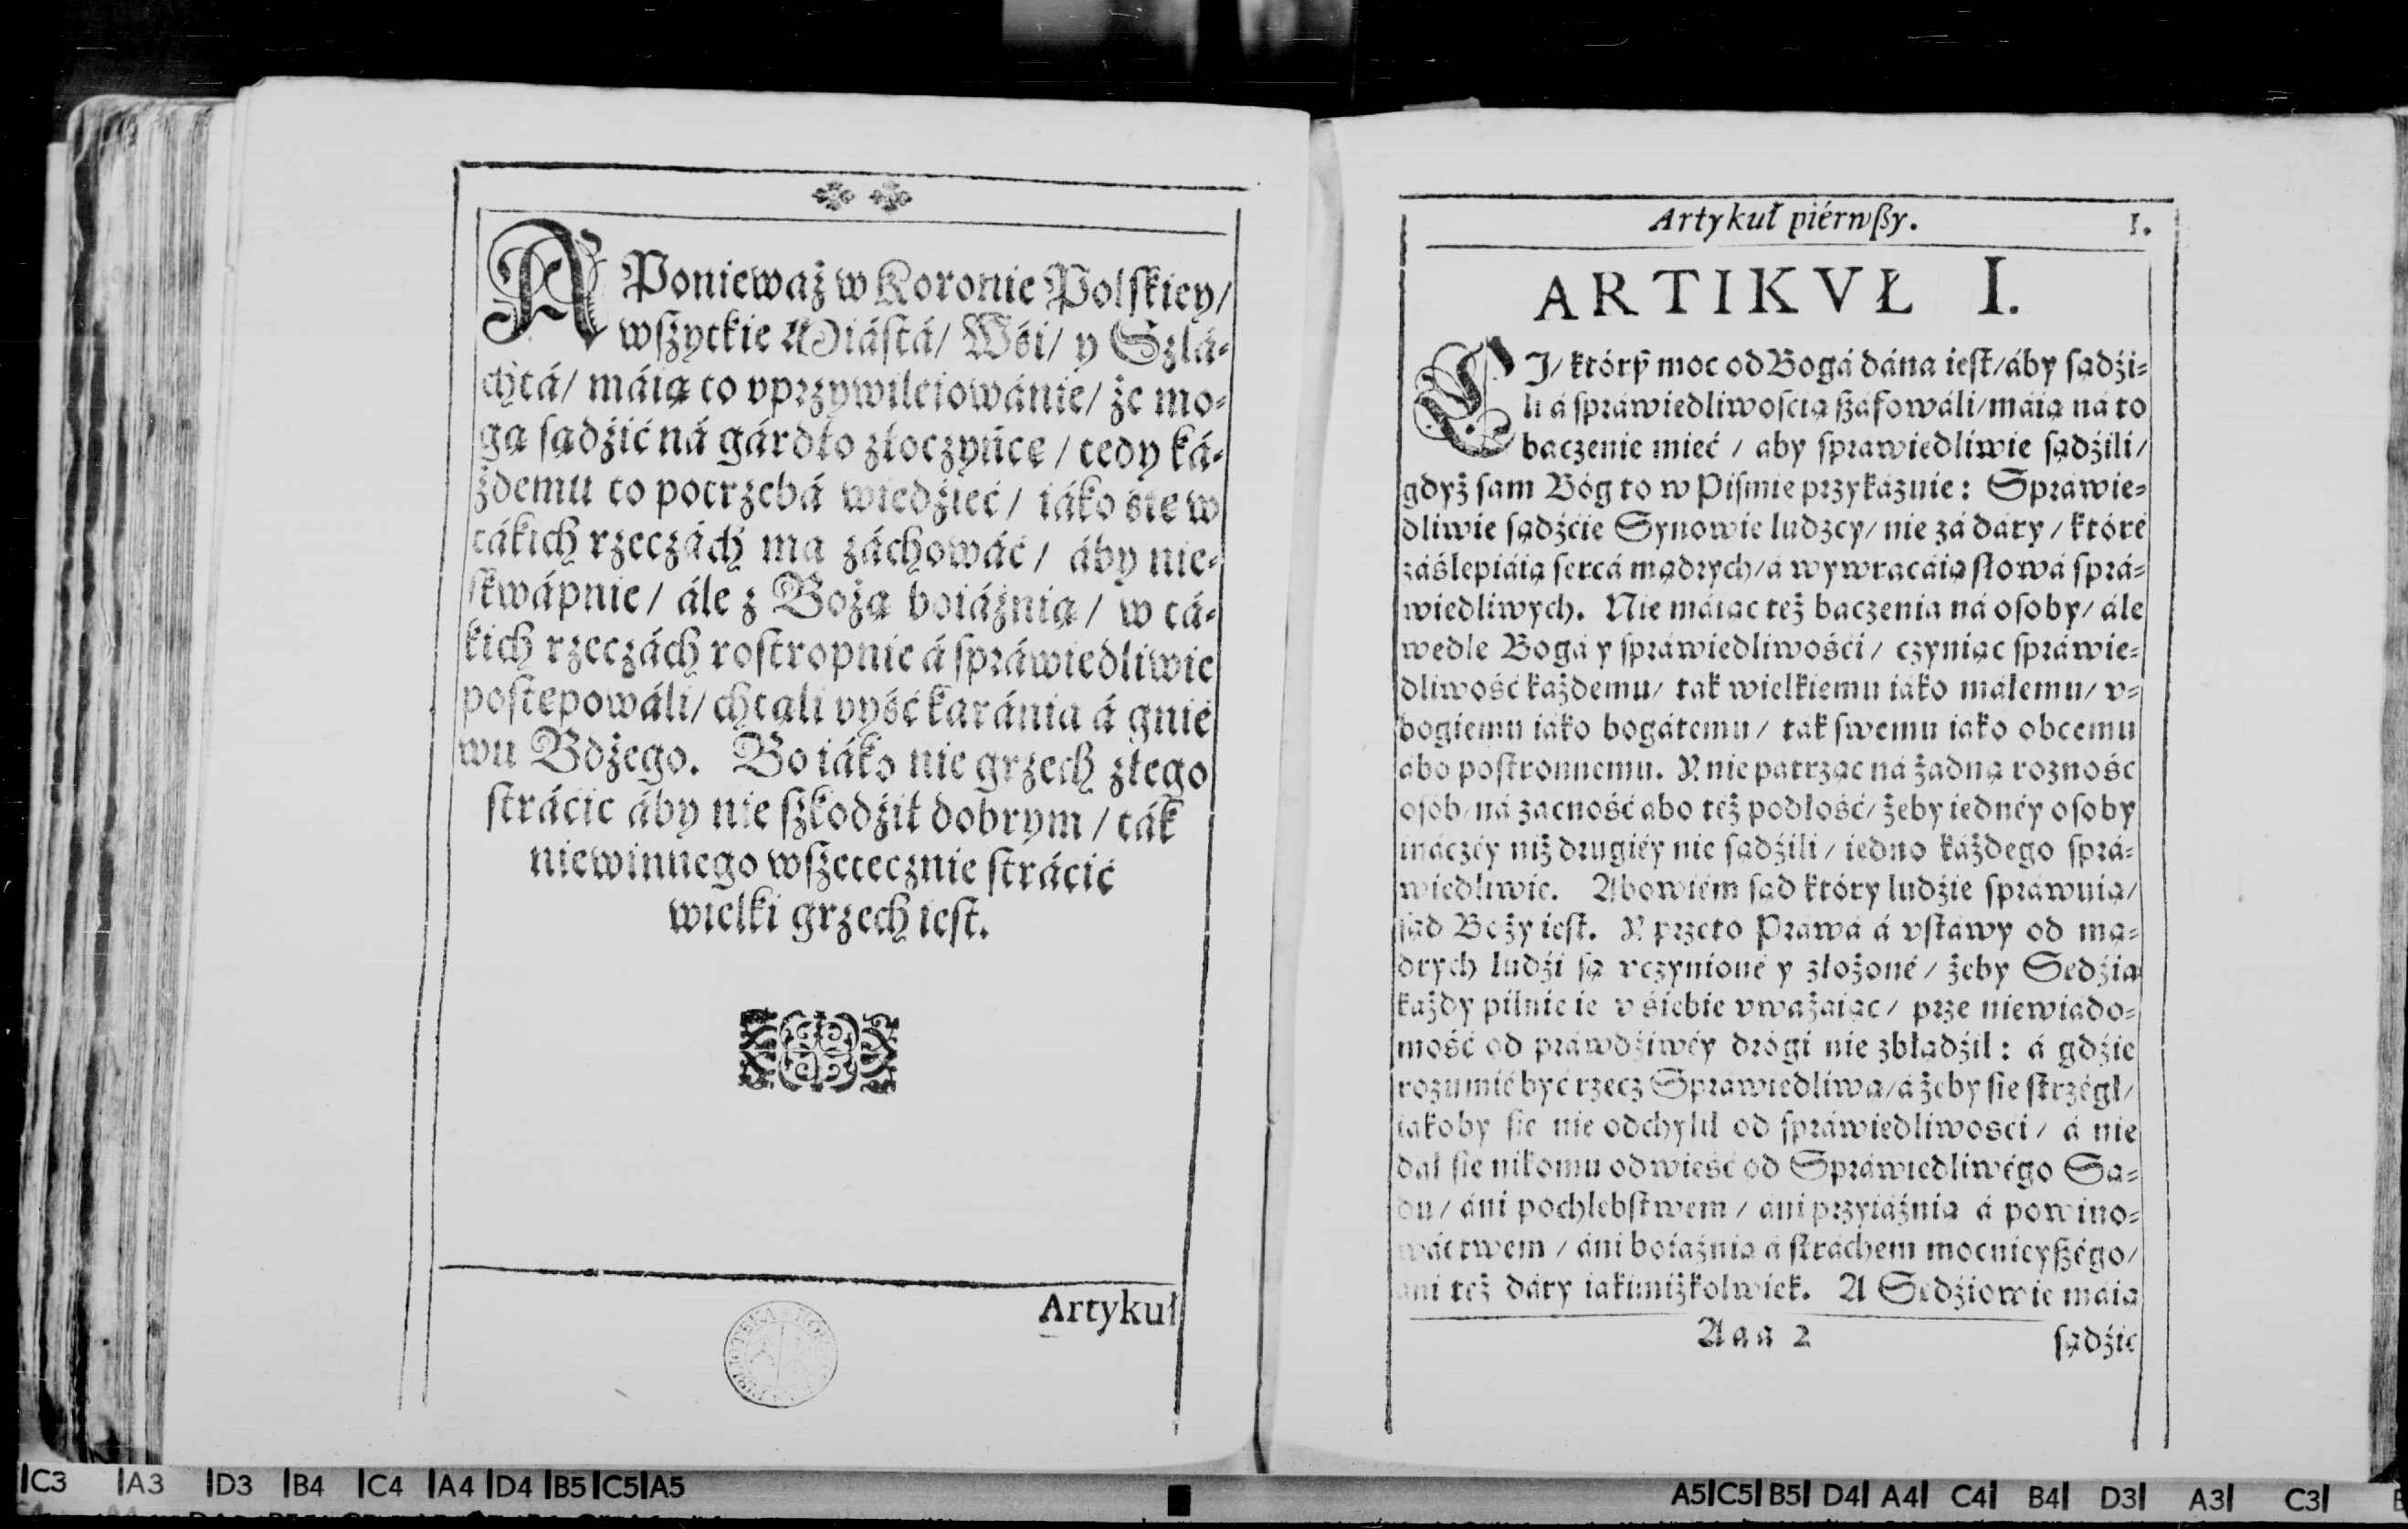 A Ponieważ w Koronie Polſkiey/
wſzytkie Miáſtá/ Wśi/ y Szlá-
chtá/ máią to vprzywileiowánie/ że mo-
gą ſądźić ná gárdło złoczyńcę/ tedy ká-
żdemu to potrzebá wiedźieć/ iáko śie w
tákich rzeczách ma záchowáć/ áby nie-
ſkwápnie/ ále z Bożą boiáźnią/ w tá-
kich rzeczách roſtropnie á ſpráwiedliwie
poſtępowáli/ chcąli vyść karánia á gnié
wu Bożego. Bo iáko nie grzech złego
ſtráćic áby nie ſzkodźił dobrym/ ták
niewinnego wſzetecznie ſtráćić
wielki grzech ieſt.
Artykuł
Artykuł piérwßy. 1.
ARTIKVŁ I.
CI/ którÿ moc od Bogá dána ieſt/áby ſądźi-
li á ſpráwiedliwoſcią ſzáfowáli/máią ná to
baczenie mieć/ aby ſprawiedliwie ſądźili/
gdyż ſam Bóg to w Piſmie przykázuie: Spráwie-
dliwie ſądźćie Synowie ludzcy/ nie zá dáry/ któré
záślepiáią ſercá mądrych/á wywracáią ſłowá ſprá-
wiedliwych. Nie máiąc też baczenia ná oſoby/ ále
wedle Bogá y ſpráwiedliwośći/ czyniąc ſpráwie-
dliwość káżdemu/ tak wielkiemu iáko máłemu/ v-
bogiemu iáko bogátemu/ tak ſwemu iako obcemu
ábo poſtronnemu. Y nie pátrząc ná żadną rozność
oſób/ ná zacność abo też podłość/ żeby iednéy oſoby
ináczéy niż drugiéy nie ſądźili/ iedno káżdego ſprá-
wiedliwie. Abowiém ſąd który ludźie ſpráwuią/
ſąd Boży ieſt. Y przeto Práwá á vſtáwy od mą-
drych ludźi ſą vczynioné y złożoné/ żeby Sędźia
każdy pilnie ie v śiebie vważaiąc/ prze niewiádo-
mość od prawdźiwéy drógi nie zbłądźił: á gdźie
rozumié być rzecz Sprawiedliwą/á żeby ſie ſtrzégł/
iakoby ſie nie odchylił od ſpráwiedliwośći/ á nie
dał ſie nikomu odwieść od Spráwiedliwégo Są-
du/ áni pochlebſtwem/ áni przyiáźnią á powino-
wáctwem/ áni boiáźnią á ſtráchem mocnieyſzégo/
áni też dáry iakimiżkolwiek. A Sędźiowie máią
Aaa 2 ſądźic
C3 A3 D3 B4 C4 A4 D4 B5 C5 A5 A5 C5 B5 D4 A4 C4 B4 D3 A3 C3